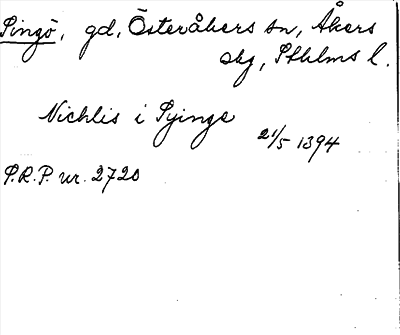 Singö, gd, Österåkers sn, Åkers
skg, Sthlms l.
Nichlis i Syinge
21/5 1394
S.R.P. nr. 2720